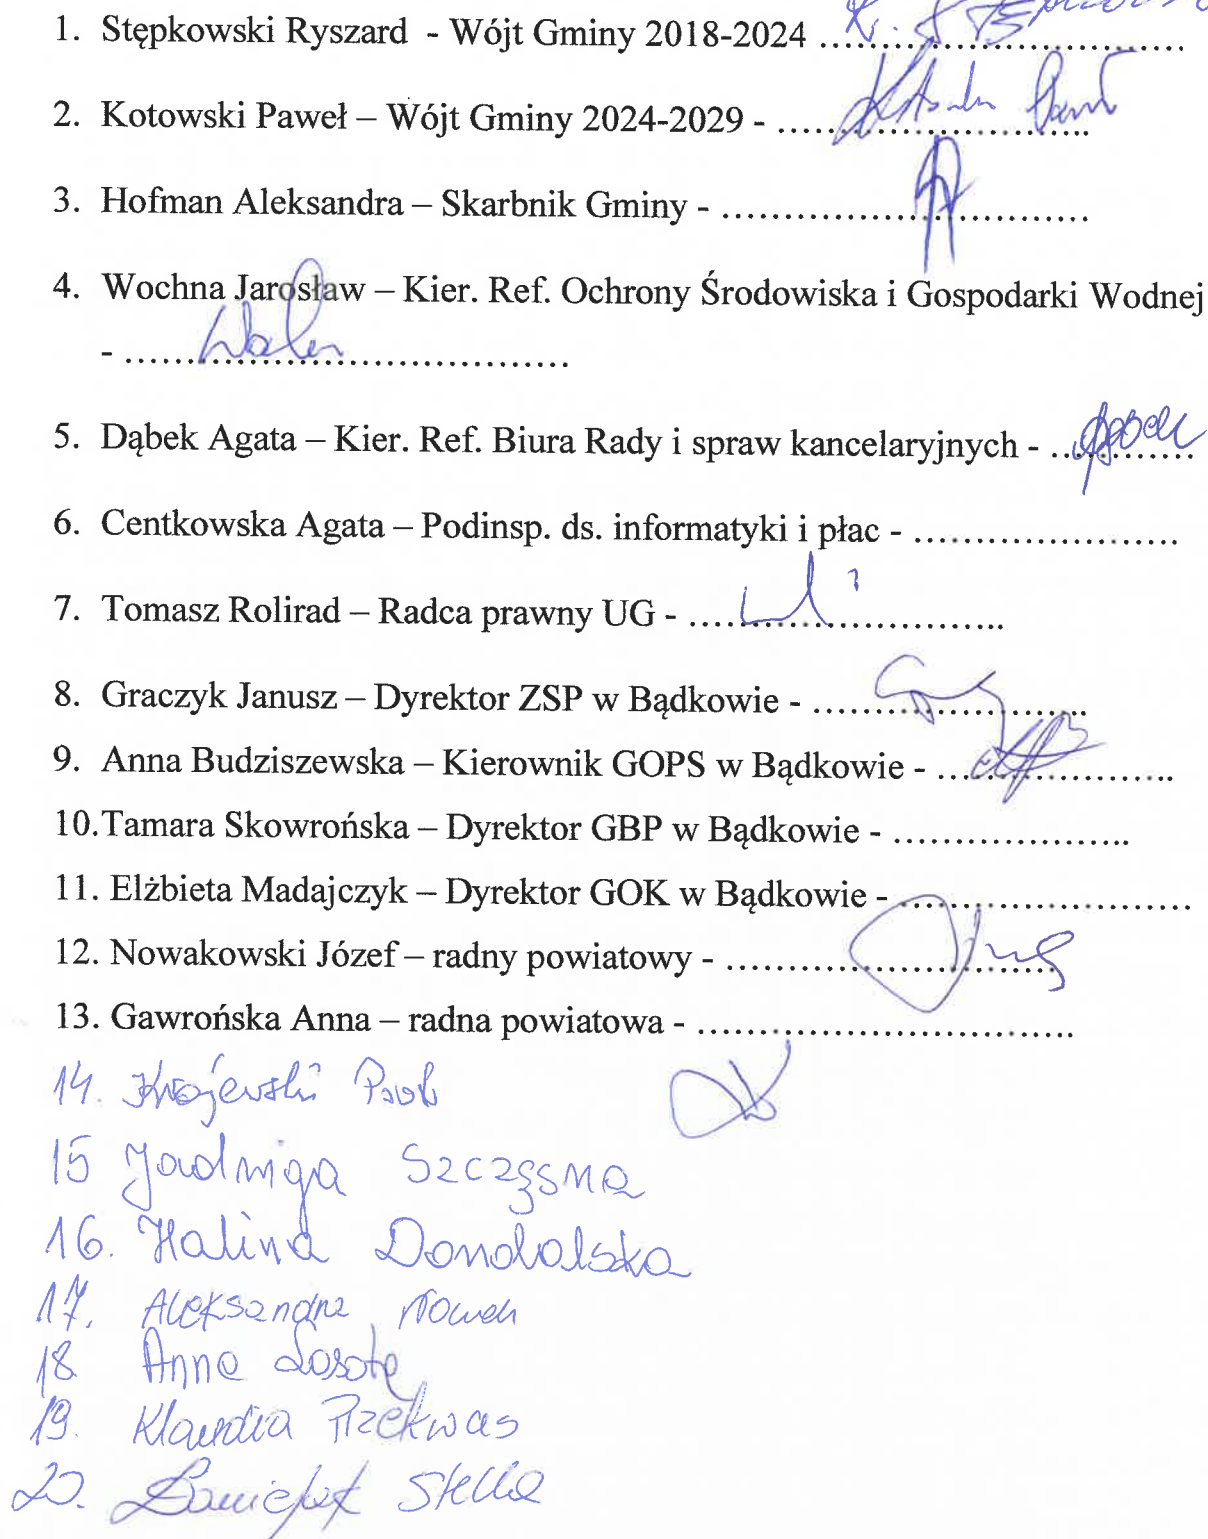 1. Stępkowski Ryszard - Wójt Gminy 2018-2024 ....................................
2. Kotowski Paweł – Wójt Gminy 2024-2029 - ..............................
3. Hofman Aleksandra – Skarbnik Gminy - ...................................
4. Wochna Jarosław – Kier. Ref. Ochrony Środowiska i Gospodarki Wodnej
- ..........................................
5. Dąbek Agata – Kier. Ref. Biura Rady i spraw kancelaryjnych - ..............
6. Centkowska Agata – Podinsp. ds. informatyki i płac - .........................
7. Tomasz Rolirad – Radca prawny UG - ..............................
8. Graczyk Janusz – Dyrektor ZSP w Bądkowie - ..........................
9. Anna Budziszewska – Kierownik GOPS w Bądkowie - .......................
10.Tamara Skowrońska – Dyrektor GBP w Bądkowie - .......................
11. Elżbieta Madajczyk – Dyrektor GOK w Bądkowie - ............................
12. Nowakowski Józef – radny powiatowy - ................................
13. Gawrońska Anna – radna powiatowa - ....................................
14. Krajewski
15 Jadwiga Szczęsna
16. Halina Dondalska
17. Aleksandra Nowak
18 Anna Lasota
19. Klaudia Przekwas
20. Stella